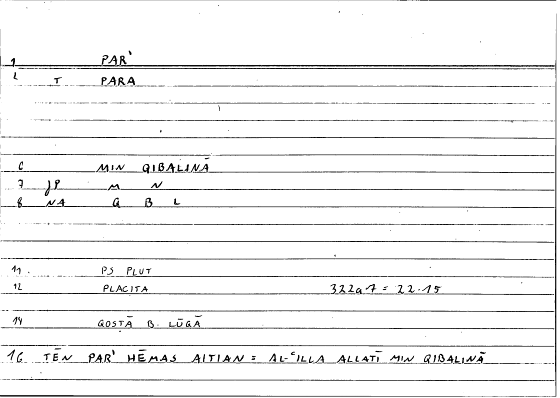 1 PAR'
2 T PARA
6 MIN QIBALINĀ
7 JP M N
8 NA Q B L
11. PS PLUT
12 PLACITA 322a7 = 22.15
14 QOSṬĀ B. LŪQĀ
16 TĒN PAR' HĒMAS AITIAN = AL-ʿILLA ALLATĪ MIN QIBALINĀ